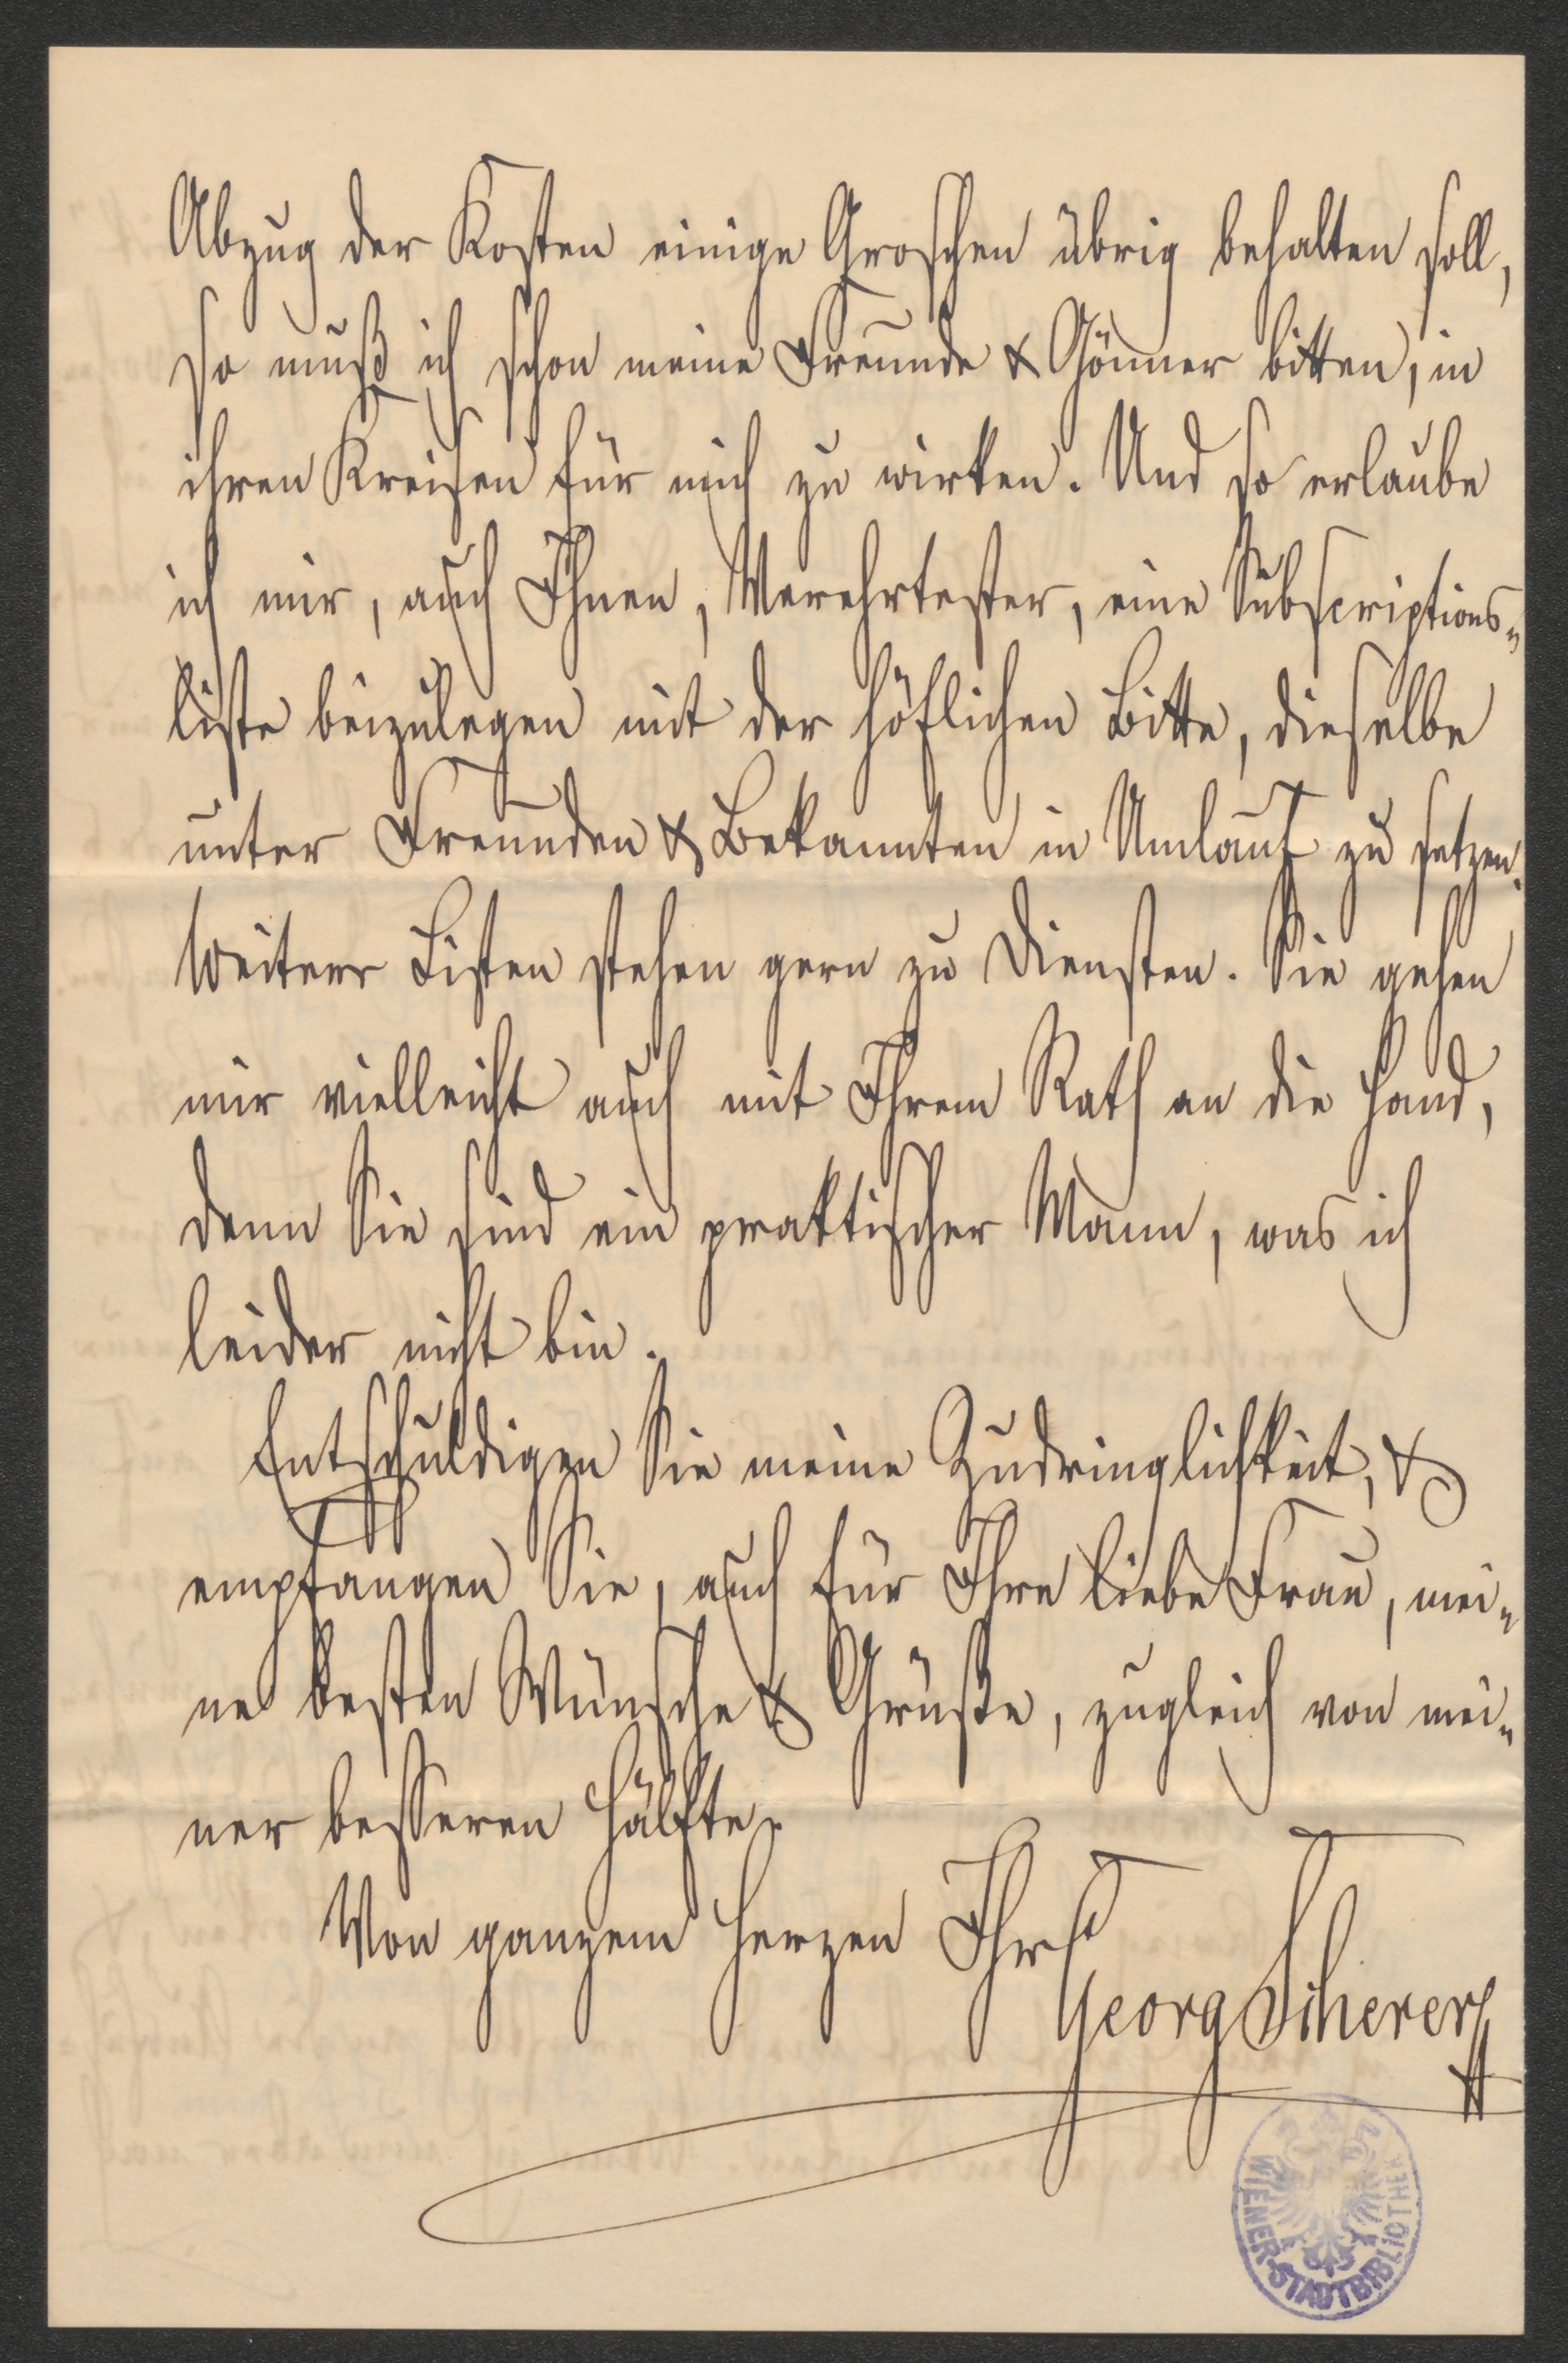 Abzug der Kosten einige Groschen übrig behalten soll,
so muß ich schon meine Freunde & Gönner bitten, in
ihren Kreisen für mich zu wirken. Und so erlaube
ich mir, auch Ihnen, Verehrtester, eine Subscriptions-
liste beizulegen mit der höflichen Bitte, dieselbe
unter Freunden & Bekannten in Umlauf zu setzen.
Weitere Listen stehen gern zu Diensten. Sie gehen
mir vielleicht auch mit Ihrem Rath an die Hand,
denn Sie sind ein praktischer Mann, was ich
leider nicht bin.
Entschuldigen Sie meine Zudringlichkeit, &
empfangen Sie, auch für Ihre liebe Frau, mei-
ne besten Wünsche & Grüße, zugleich von mei-
ner besseren Hälfte.
Von ganzem Herzen Ihr
Georg Scherer
WIENER-STADTBIBLIOTHEK